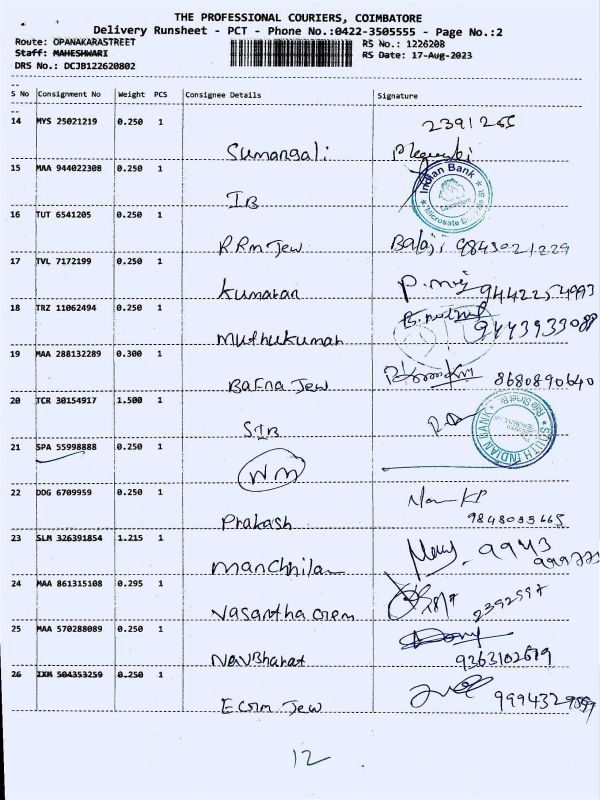 THE PROFESSIONAL COURIERS, COIMBATORE
Delivery Runsheet - PCT - Phone No.:0422-3505555 - Page No.:2
Route: OPANAKARASTREET RS No.: 1226208
Staff: MAHESHWARI RS Date: 17-Aug-2023
DRS No.: DCJB122620802
S No Consignment No Weight PCS Consignee Details Signature
14 MYS 25021219 0.250 1 2391265
Sumangali
15 MAA 944022308 0.250 1
IB Indian Bank
16 TUT 6541205 0.250 1
RRM Jew Balaji 9843021229
17 TVL 7172199 0.250 1
Kumaran 9442254993
18 TRZ 11062494 0.250 1
Muthukumar 9443933088
19 MAA 288132289 0.300 1
Bafna Jew 8680890640
20 TCR 30154917 1.500 1
SIB SOUTH INDIAN BANK
21 SPA 55998888 0.250 1
22 DDG 6709959 0.250 1
Prakash
23 SLM 326391854 1.215 1
24 MAA 861315108 0.295 1
Vasantha Gem 2392597
25 MAA 570288089 0.250 1
Navbharat 9363102679
26 IXM 504353259 0.250 1
Jew
12